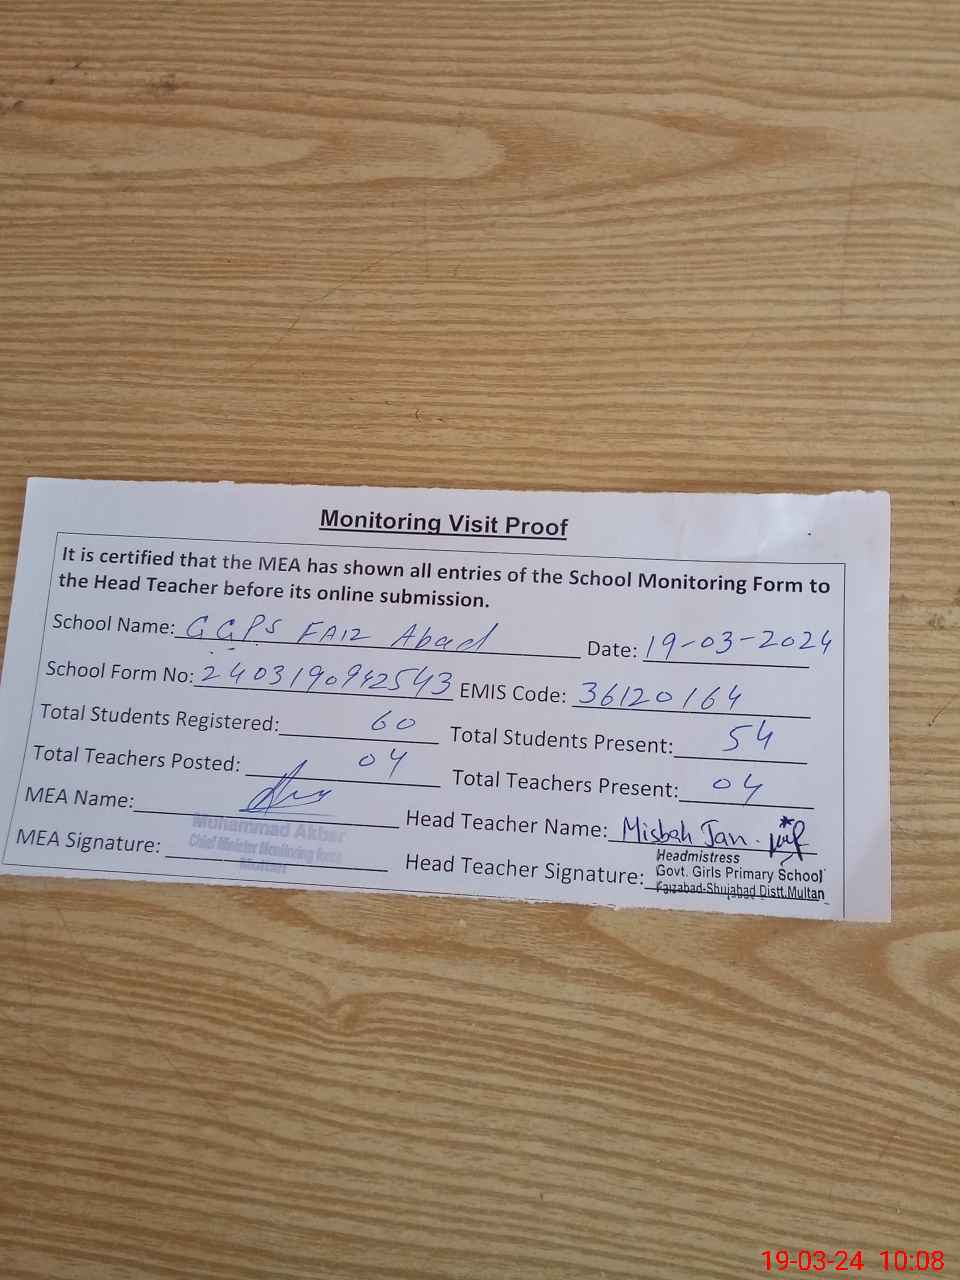 Monitoring Visit Proof
It is certified that the MEA has shown all entries of the School Monitoring Form to
the Head Teacher before its online submission.
School Name: GGPS FAIZ Abad Date: 19-03-2024
School Form No: 2403190942543 EMIS Code: 36120164
Total Students Registered: 60 Total Students Present: 54
Total Teachers Posted: 04 Total Teachers Present: 04
MEA Name: Head Teacher Name: Misbah Jan.
Muhammad Akbar
Chief Minister Monitoring Force
Multan
MEA Signature: Head Teacher Signature:
Headmistress
Govt. Girls Primary School
Faizabad-Shujabad Distt.Multan
19-03-24 10:08